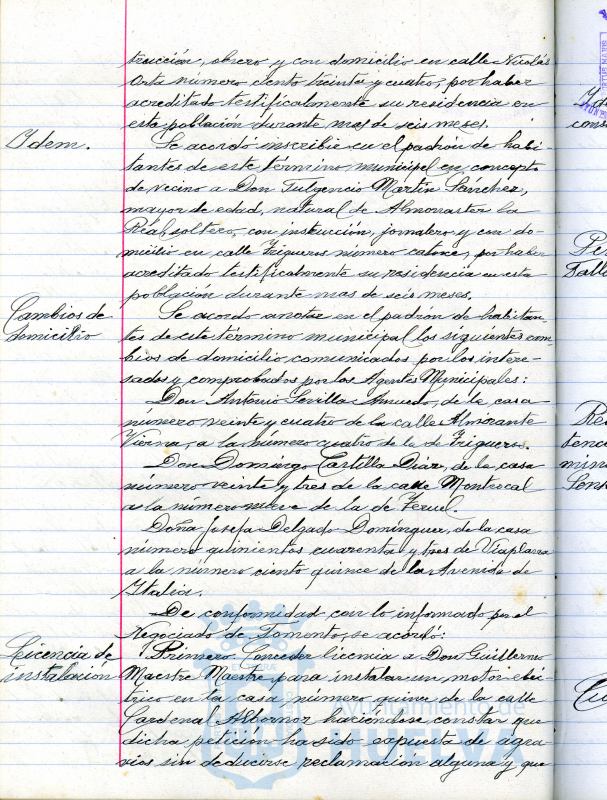 trucción, obrero y con domicilio en calle Nicolás
Orta número ciento treinta y cuatro, por haber
acreditado testificalmente su residencia en
esta población durante mas de seis meses.
Idem.
Se acordó inscribir en el padrón de habi-
tantes de este término municipal en concepto
de vecino a Don Fulgencio Martin Sanchez,
mayor de edad, natural de Almonaster la
Real, soltero, con instrucción, jornalero y con do-
micilio en calle Trigueros número catorce, por haber
acreditado testificalmente su residencia en esta
población durante mas de seis meses.
Cambios de
domicilio
Se acordo anotar en el padrón de habitan-
tes de este término municipal los siguientes cam-
bios de domicilio comunicados por los intere-
sados y comprobados por los Agentes Municipales:
Don Antonio Sevilla, de la casa
número veinte y cuatro de la calle Almirante
a la número cuatro de la de Trigueros.
Don Domingo Castilla Diaz, de la casa
número veinte y tres de la calle Montrocal
a la número nueve de la de Teruel.
Doña Josefa Delgado Dominguez, de la casa
número quinientos cuarenta y tres de Viaplana
a la número ciento quince de la Avenida de
Italia.
De conformidad con lo informado por el
Negociado de Fomento, se acordó:
Licencia de
instalación
Primero Conceder licencia a Don Guillermo
Maestre Maestre para instalar un motor eléc-
trico en la casa número quince de la calle
Cardenal Albornoz haciendose constar que
dicha petición ha sido expuesta de agra-
vios sin deducirse reclamación alguna y que
Ayuntamiento de
HUELVA